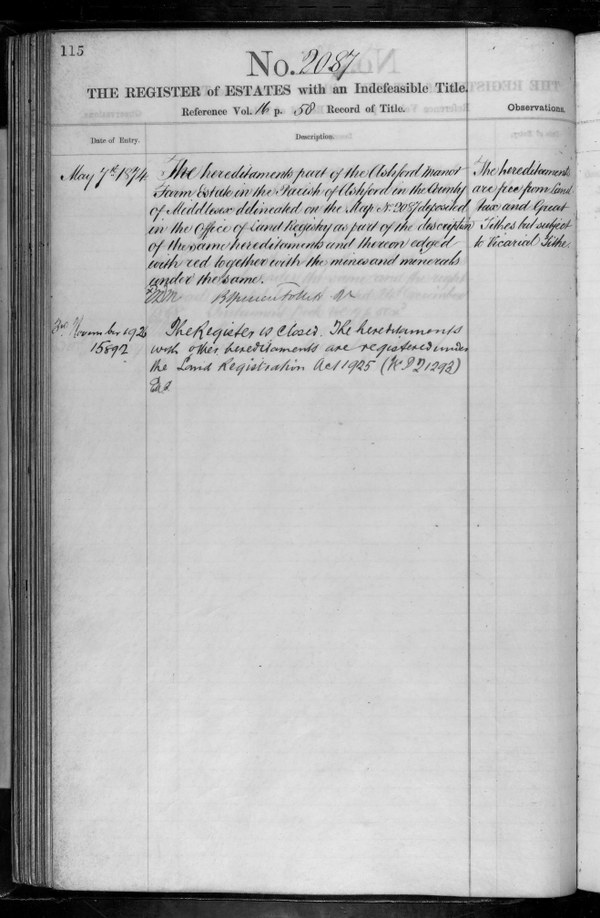 115
No. 2087
THE REGISTER of ESTATES with an Indefeasible Title.
Reference Vol. 16 p. 58 Record of Title.
Observations.
Date of Entry.
Description.
May 7th 1874
The hereditaments part of the Ashford Manor
Farm Estate in the Parish of Ashford in the County
of Middlesex delineated on the Map No. 2087 deposited
in the Office of Land Registry as part of the description
of the same hereditaments and thereon edged
with red together with the mines and minerals
under the same.
The hereditaments
are free from Land
Tax and Great
Tithes but subject
to Vicarial Tithe
November 1926
15892
The Register is closed. The hereditaments
with other hereditaments are registered under
the Land Registration Act 1925